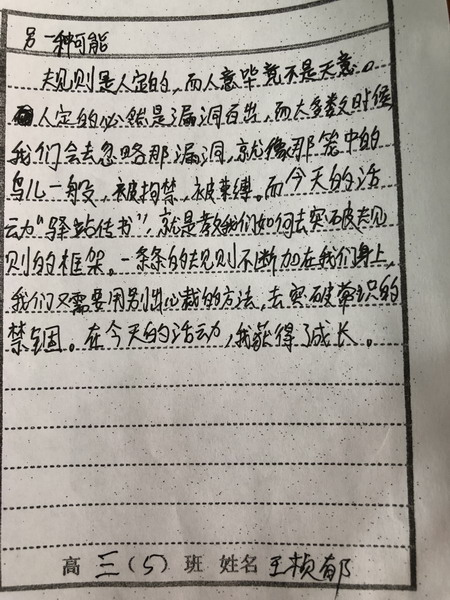 另一种可能
规则是人定的，而人意毕竟不是天意。
人定的必然是漏洞百出，而大多数时候
我们会去忽略那漏洞，就像那笼中的
鸟儿一般，被拘禁，被束缚。而今天的活
动“驿站传书”，就是教我们如何去突破规
则的框架。一条条的规则不断加在我们身上，
我们又需要用别出心裁的方法，去突破常识的
禁锢。在今天的活动，我获得了成长。
高 三 (5) 班 姓名 王桢郁